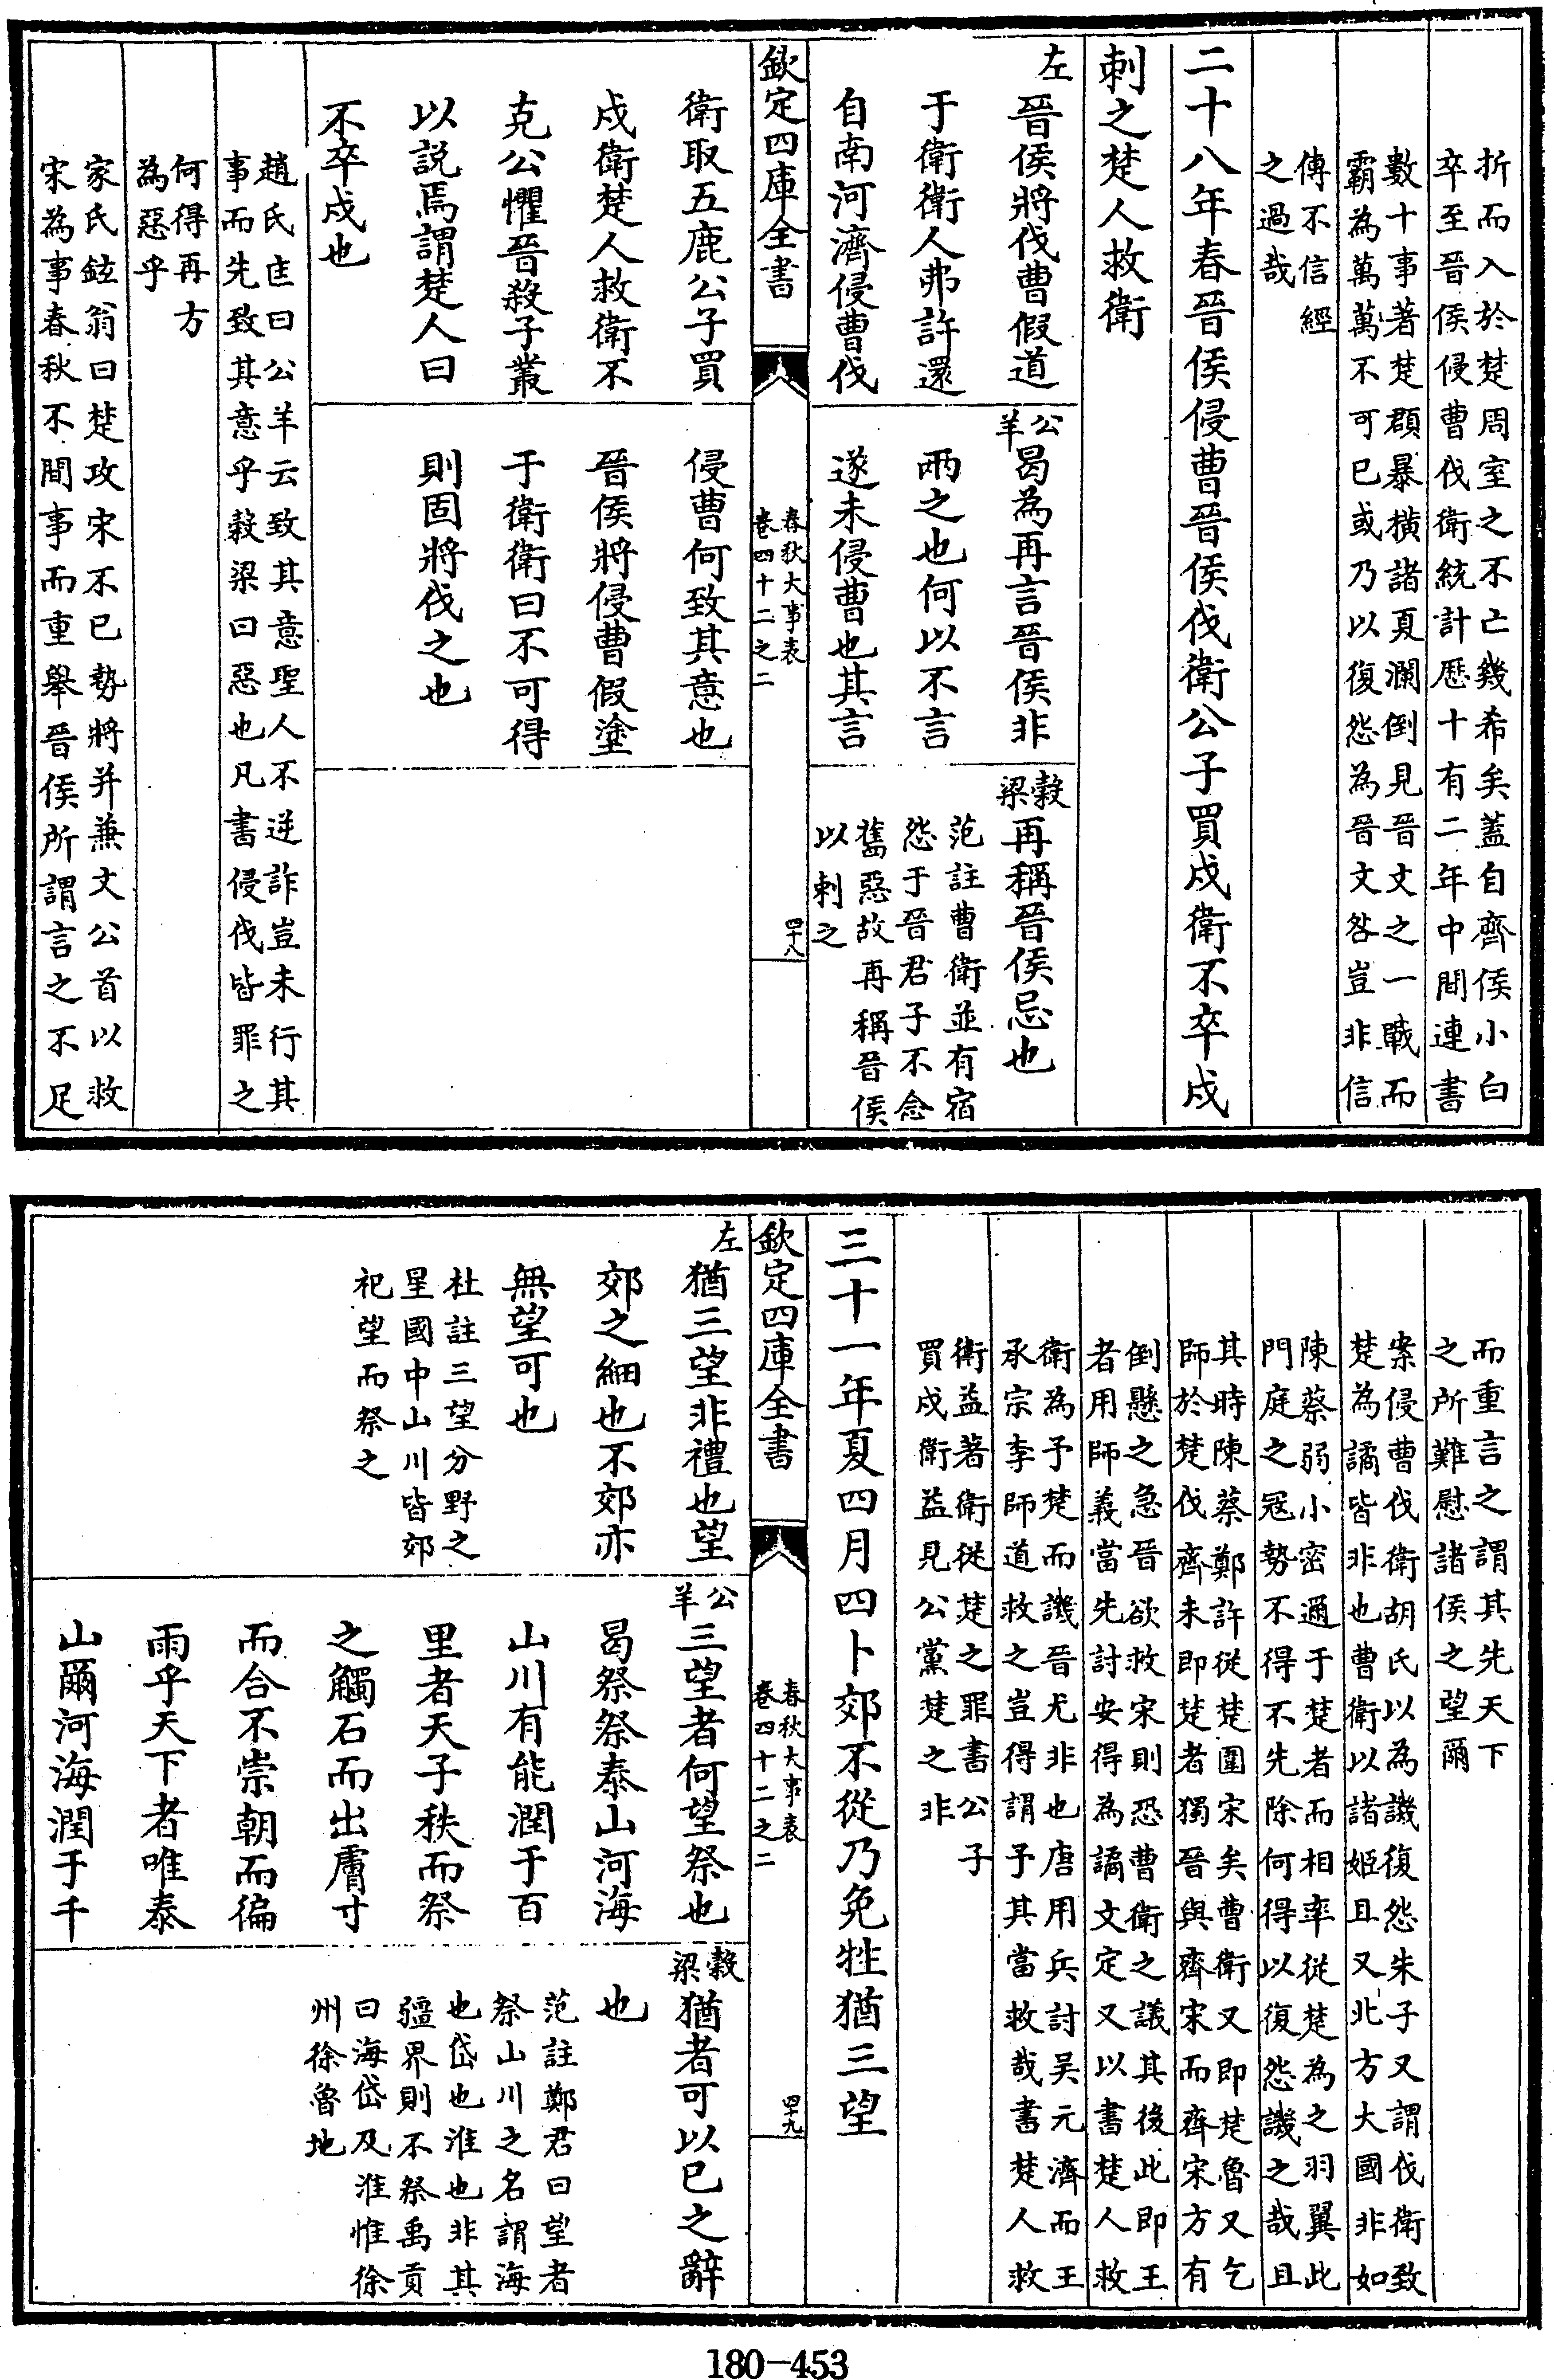 折而入於楚周室之不亡幾希矣蓋自齊侯小白
卒至晉侯侵曹伐衛統計歷十有二年中間連書
數十事著楚頵暴橫諸夏瀾倒見晉文之一戰而
霸為萬萬不可已或乃以復怨為晉文咎豈非信
傳不信經
之過哉
二十八年春晉侯侵曹晉侯伐衛公子買戍衛不卒戍
刺之楚人救衛
左
晉侯將伐曹假道
于衛衛人弗許還
自南河濟侵曹伐
衛取五鹿公子買
戍衛楚人救衛不
克公懼晉殺子叢
以説焉謂楚人曰
不卒戍也
公羊
曷為再言晉侯非
兩之也何以不言
遂未侵曹也其言
侵曹何致其意也
晉侯將侵曹假塗
于衛衛曰不可得
則固將伐之也
穀梁
再稱晉侯忌也
范註曹衛並有宿
怨于晉君子不念
舊惡故再稱晉侯
以刺之
欽定四庫全書
春秋大事表
卷四十二之二
四十八
趙氏匡曰公羊云致其意聖人不逆詐豈未行其
事而先致其意乎穀梁曰惡也凡書侵伐皆罪之
何得再方
為惡乎
家氏鉉翁曰楚攻宋不已勢將并兼文公首以救
宋為事春秋不間事而重舉晉侯所謂言之不足
而重言之謂其先天下
之所難慰諸侯之望爾
案侵曹伐衛胡氏以為譏復怨朱子又謂伐衛致
楚為譎皆非也曹衛以諸姬且又北方大國非如
陳蔡弱小密邇于楚者而相率從楚為之羽翼此
門庭之冦勢不得不先除何得以復怨譏之哉且
其時陳蔡鄭許從楚圍宋矣曹衛又即楚魯又乞
師於楚伐齊未即楚者獨晉與齊宋而齊宋方有
倒懸之急晉欲救宋則恐曹衛之議其後此即王
者用師義當先討安得為譎文定又以書楚人救
衛為予楚而譏晉尤非也唐用兵討吴元濟而王
承宗李師道救之豈得謂予其當救哉書楚人救
衛益著衛從楚之罪書公子
買戍衛益見公黨楚之非
三十一年夏四月四卜郊不從乃免牲猶三望
欽定四庫全書
春秋大事表
卷四十二之二
四十九
左
猶三望非禮也望
郊之細也不郊亦
無望可也
杜註三望分野之
星國中山川皆郊
祀望而祭之
公羊
三望者何望祭也
曷祭祭泰山河海
山川有能潤于百
里者天子秩而祭
之觸石而出膚寸
而合不崇朝而徧
雨乎天下者唯泰
山爾河海潤于千
穀梁
猶者可以已之辭
也
范註鄭君曰望者
祭山川之名謂海
也岱也淮也非其
疆界則不祭禹貢
曰海岱及淮惟徐
州徐魯地
180-453